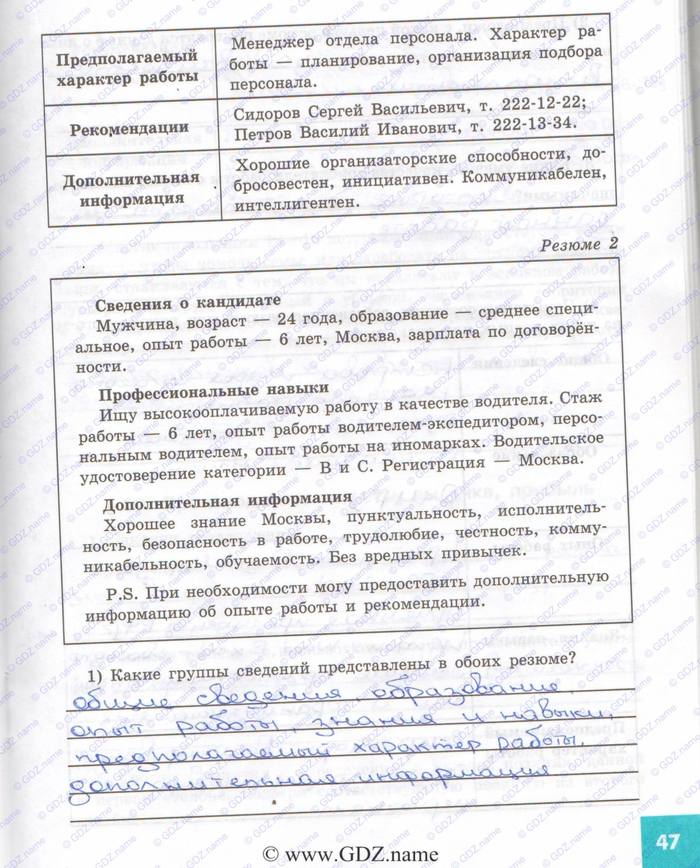 Предполагаемый характер работы
Менеджер отдела персонала. Характер ра-
боты — планирование, организация подбора
персонала.
Рекомендации
Сидоров Сергей Васильевич, т. 222-12-22;
Петров Василий Иванович, т. 222-13-34.
Дополнительная информация
Хорошие организаторские способности, до-
бросовестен, инициативен. Коммуникабелен,
интеллигентен.
Резюме 2
Сведения о кандидате
Мужчина, возраст — 24 года, образование — среднее специ-
альное, опыт работы — 6 лет, Москва, зарплата по договорён-
ности.
Профессиональные навыки
Ищу высокооплачиваемую работу в качестве водителя. Стаж
работы — 6 лет, опыт работы водителем-экспедитором, персо-
нальным водителем, опыт работы на иномарках. Водительское
удостоверение категории — В и С. Регистрация — Москва.
Дополнительная информация
Хорошее знание Москвы, пунктуальность, исполнитель-
ность, безопасность в работе, трудолюбие, честность, комму-
никабельность, обучаемость. Без вредных привычек.
P.S. При необходимости могу предоставить дополнительную
информацию об опыте работы и рекомендации.
1) Какие группы сведений представлены в обоих резюме?
общие сведения, образование,
опыт работы, знания и навыки,
предполагаемый характер работы,
дополнительная информация
47
© www.GDZ.name